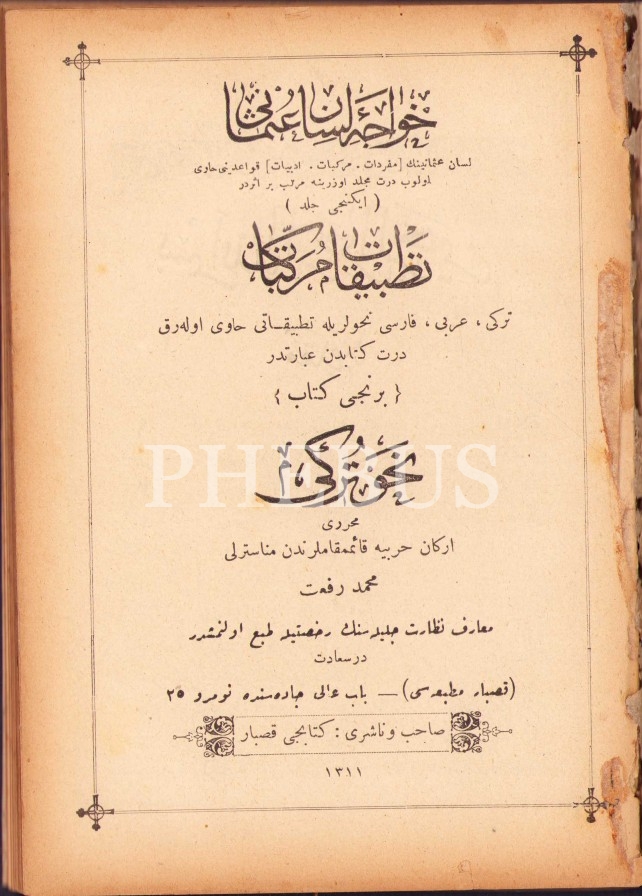 خواجۀ لسان عثمانی
لسان عثمانینك [مفردات . مركبات . ادبیات] قواعدینی حاوی
اولوب درت مجلد اوزرینه مرتب بر اثردر
( ایكنجی جلد )
تطبیقات مركبات
تركی ، عربی ، فارسی نحولریله تطبیقاتی حاوی اوله‌رق
درت كتابدن عبارتدر
{ برنجی كتاب }
نحو تركی
PHEBUS
محرری
اركان حربیه قائممقاملرندن مناسترلی
محمد رفعت
معارف نظارت جلیله‌سنك رخصتیله طبع اولنمشدر
درسعادت
(قصبار مطبعه‌سی) — باب عالی جاده‌سنده نومرو ٢٥
صاحب و ناشری : كتابجی قصبار
١٣١١